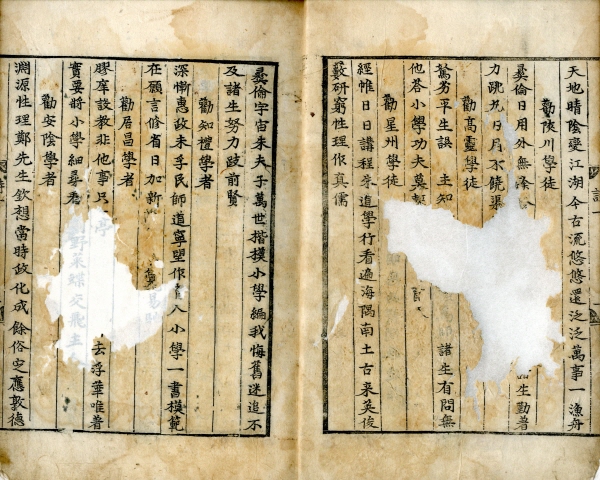 天地晴陰變江湖今古流悠悠還泛泛萬事一漁舟
勸陜川學徒
彝倫日用外無 生勤着
力跳丸日月不饒渠
勸高靈學徒
駑劣平生誤 主知 諸生有問無
他答小學功夫莫
勸星州學徒
經帷日日講程朱道學行看遍海隅南土古来英俊
藪研窮性理作眞儒
彝倫宇宙朱夫子萬世揩撲小學編我悔舊迷追不
及諸生努力跂前賢
勸知禮學者
深慚惠政未孚民師道寧望作 人小學一書模範
在願言修省日加新
勸居昌學者
膠庠設教非他事只 去浮華唯着
實要將小學細尋
勸安陰學者
淵源性理鄭先生欽想當時政化成餘俗定應敦德